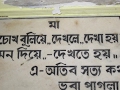 মা
চোখ বুলিয়ে, দেখলে, দেখা হয়
মন দিয়ে.. -দেখতে হয়॥
এ-অতিব সত্য কথা
ভবা পাগলা